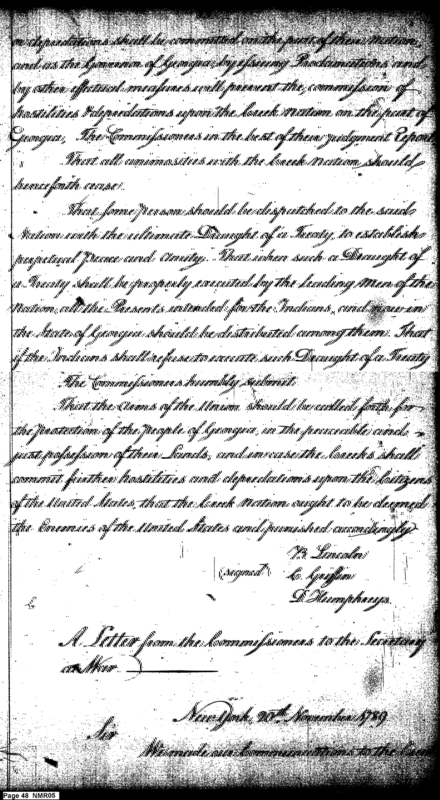 or depredations shall be committed on the part of their Nation,
and as the Governor of Georgia, by issuing Proclamations and
by other effectual measures will prevent the commission of
hostilities & depredations upon the Creek Nation on the part of
Georgia, The Commissioners in the best of their judgment Report
That all animosities with the Creek Nation should
henceforth cease.
That some person should be despatched to the said
Nation with the ultimate Draught of a Treaty to establish
perpetual Peace and Amity. That when such a Draught of
a Treaty shall be properly executed by the leading Men of the
Nation, all the Presents intended for the Indians, and now in
the State of Georgia should be distributed among them. That
if the Indians shall refuse to execute such Draught of a Treaty
The Commissioners humbly submit.
That the Arms of the Union should be called forth for
the Protection of the People of Georgia, in the peaceable and
just possession of their Lands; and in case the Creeks shall
commit further hostilities and depredations upon the Citizens
of the United States, that the Creek Nation ought to be deemed
the Enemies of the United States and punished accordingly
B. Lincoln
(signed) C. Griffin
D. Humphreys.
A Letter from the Commissioners to the Secretary
at War
New York, 20th November 1789
Sir
We made our Communications to the
Page 48 NMR05